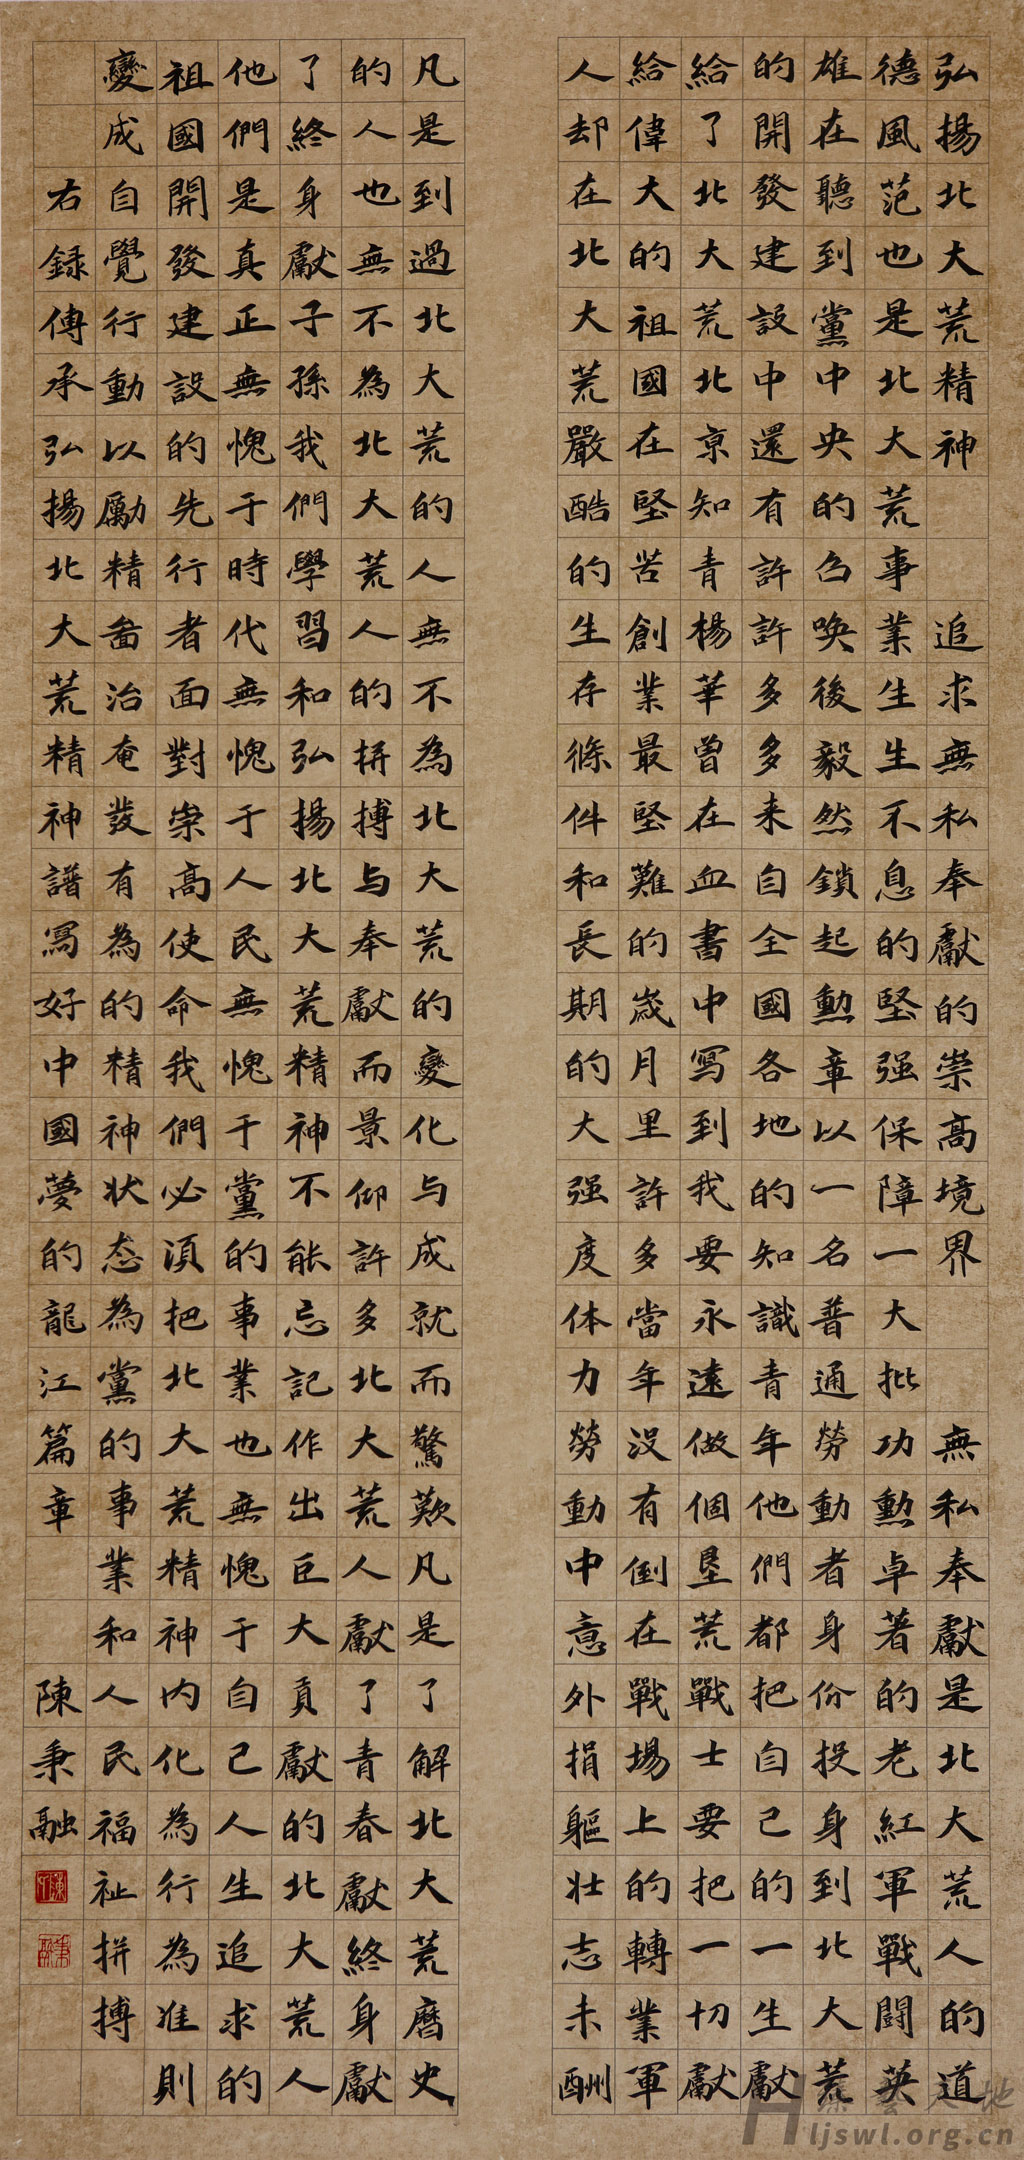 弘揚北大荒精神 追求無私奉獻的崇高境界 無私奉獻是北大荒人的道
德風范也是北大荒事業生生不息的堅强保障一大批功勳卓著的老紅軍戰鬪英
雄在聽到黨中央的召喚後毅然鎖起勳章以一名普通勞動者身份投身到北大荒
的開發建設中還有許許多多来自全國各地的知識青年他們都把自己的一生獻
給了北大荒北京知青楊華曾在血書中写到我要永遠做個墾荒戰士要把一切獻
給偉大的祖國在堅苦創業最堅難的歲月里許多當年没有倒在戰場上的轉業軍
人却在北大荒嚴酷的生存條件和長期的大强度体力勞動中意外捐軀壯志未酬
凡是到過北大荒的人無不為北大荒的變化与成就而驚歎凡是了解北大荒曆史
的人也無不為北大荒人的拼搏与奉獻而景仰許多北大荒人獻了青春獻終身獻
了終身獻子孫我們學習和弘揚北大荒精神不能忘記作出巨大貢獻的北大荒人
他們是真正無愧于時代無愧于人民無愧于黨的事業也無愧于自己人生追求的
祖國開發建設的先行者面對崇高使命我們必須把北大荒精神内化為行為准則
變成自覺行動以勵精啚治奄發有為的精神状态為黨的事業和人民福祉拼搏
右録傳承弘揚北大荒精神譜寫好中國夢的龍江篇章 陳秉融
ljswl.org.cn